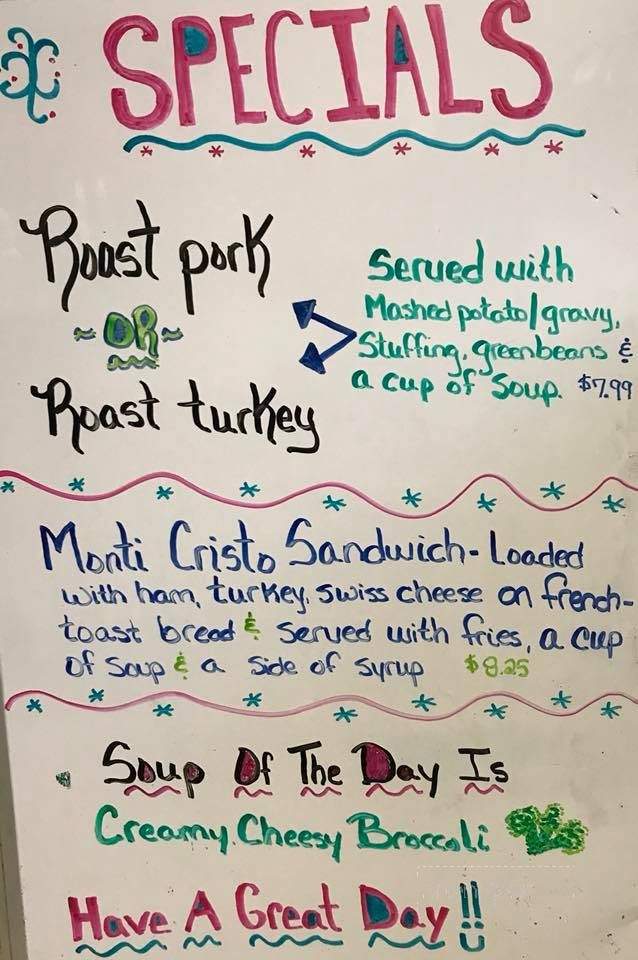 SPECIALS
Roast pork
~OR~
Roast turkey
Served with
Mashed potato/gravy,
Stuffing, greenbeans &
a cup of soup. $7.99
Monti Cristo Sandwich-Loaded
with ham, turkey, swiss cheese on french-
toast bread & served with fries, a cup
of soup & a side of syrup $8.25
Soup Of The Day Is
Creamy Cheesy Broccoli
Have A Great Day!!